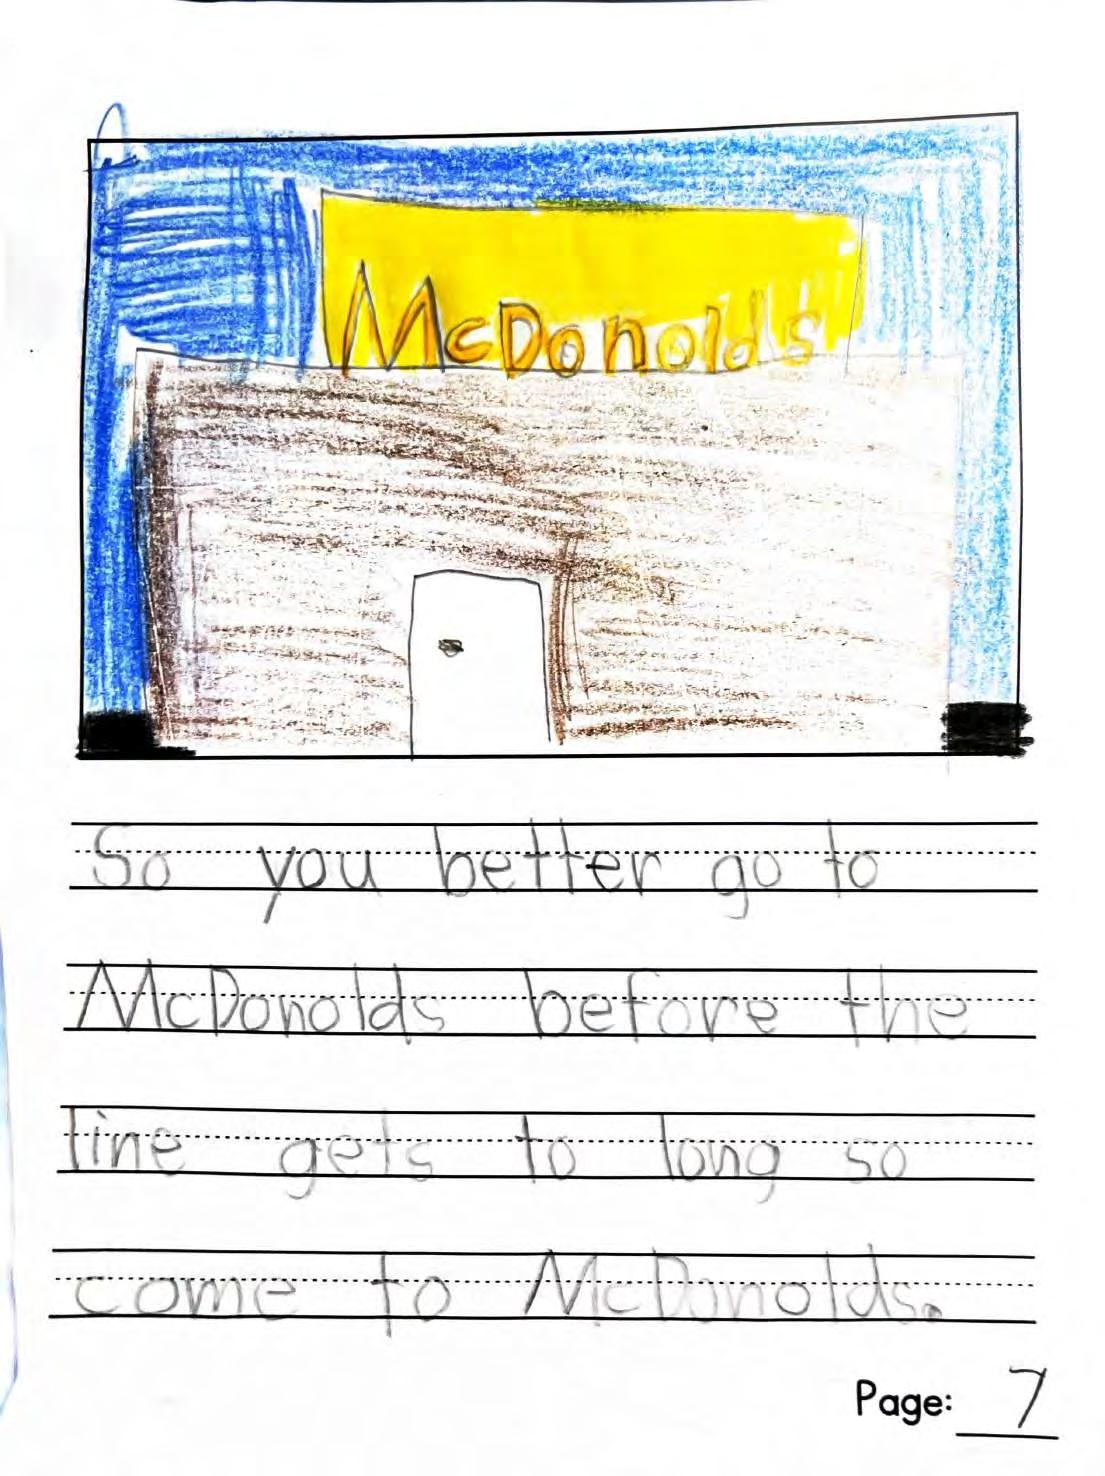 McDonolds
So you better go to
McDonolds before the
line gets to long so
come to McDonolds.
Page: 7